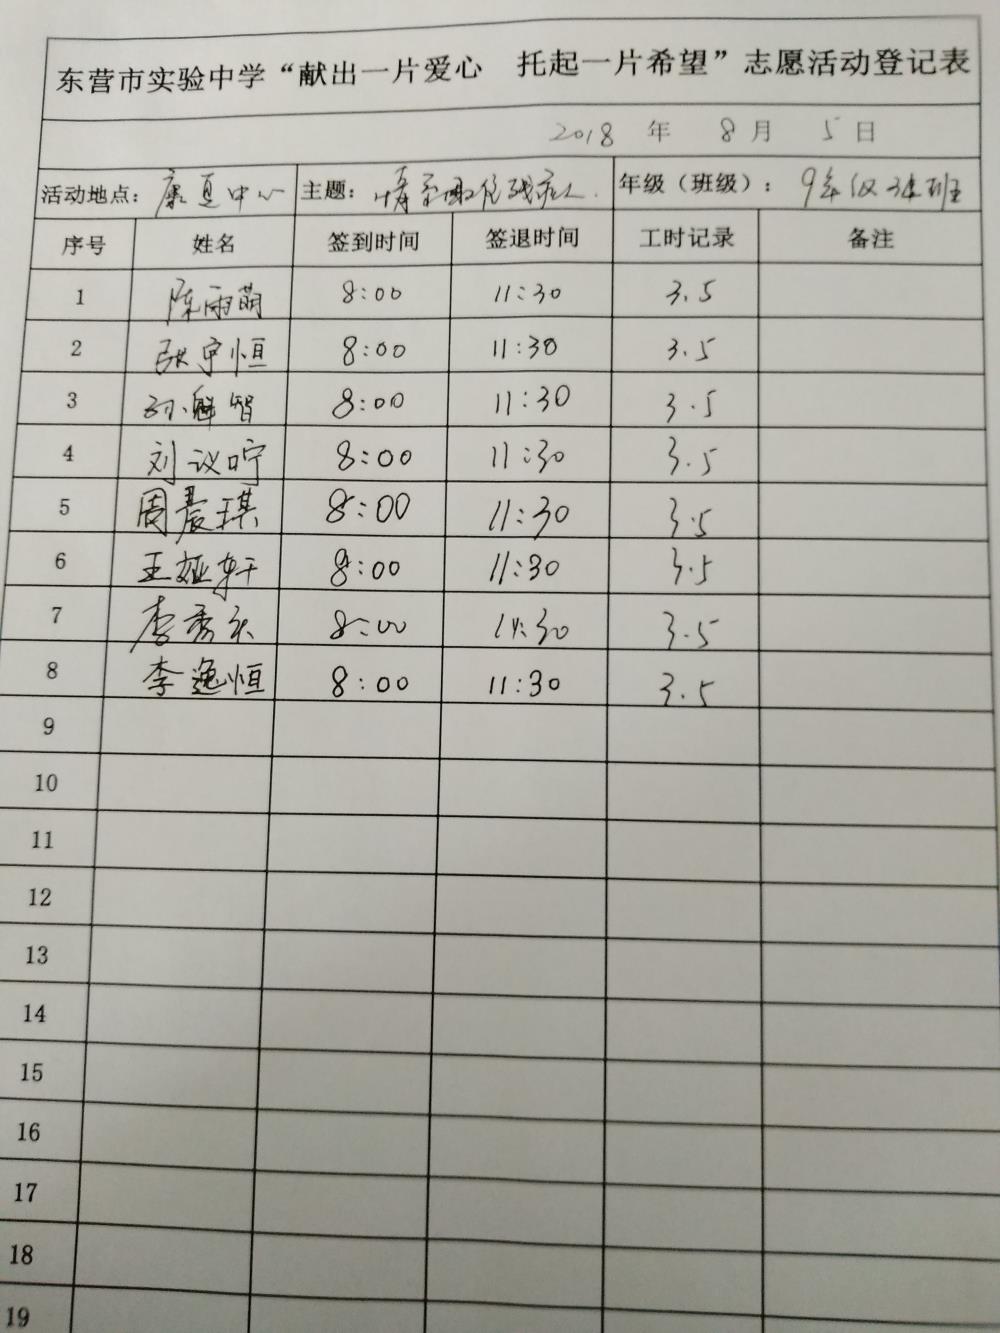 东营市实验中学“献出一片爱心 托起一片希望”志愿活动登记表
2018 年 8 月 5 日
活动地点：康复中心 主题： 残疾人. 年级（班级）： 9年级 班
序号 姓名 签到时间 签退时间 工时记录 备注
1 陈雨萌 8:00 11:30 3.5
2 张宇恒 8:00 11:30 3.5
3 孙 智 8:00 11:30 3.5
4 刘议咛 8:00 11:30 3.5
5 周晨琪 8:00 11:30 3.5
6 王娅轩 8:00 11:30 3.5
7 李秀 8:00 11:30 3.5
8 李逸恒 8:00 11:30 3.5
9
10
11
12
13
14
15
16
17
18
19